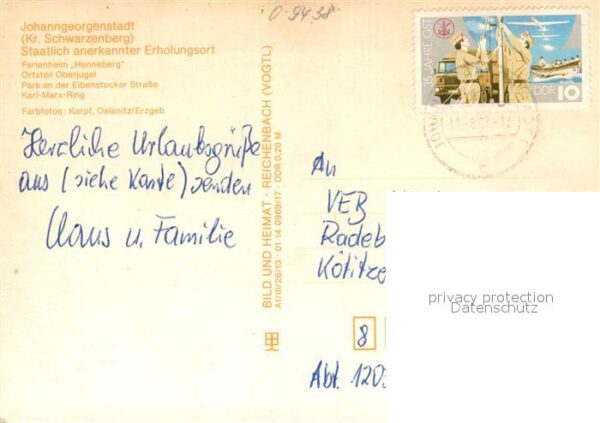 Johanngeorgenstadt
(Kr. Schwarzenberg)
Staatlich anerkannter Erholungsort
Ferienheim „Henneberg“
Ortsteil Oberjugel
Park an der Eibenstocker Straße
Karl-Marx-Ring
Farbfotos: Karpf, Oelsnitz/Erzgeb.
Herzliche Urlaubsgrüße
aus (siehe Karte) senden
Klaus u. Familie
BILD UND HEIMAT · REICHENBACH (VOGTL)
A1/III/26/13 · 01 14 0969/17 · DDR 0,20 M
0-9438-
35 JAHRE GST
DDR 10
An
VEB
Radeb
Kötitze
8
Abt. 120
privacy protection
Datenschutz